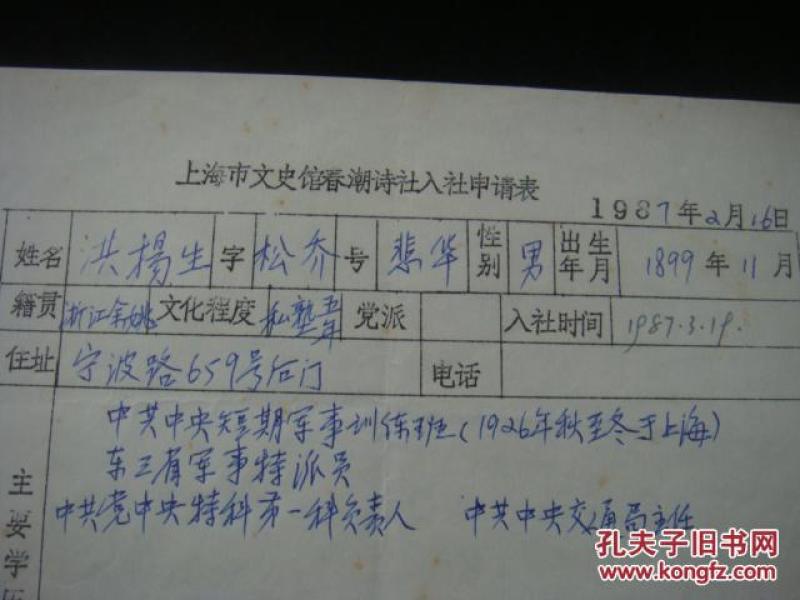 上海市文史馆春潮诗社入社申请表
1987年2月16日
姓名 洪楊生 字 松乔 号 悲华 性别 男 出生年月 1899年11月
籍贯 浙江余姚 文化程度 私塾五年 党派 入社时间 1987.3.19.
住址 宁波路659号后门 电话
中共中央短期军事训练班(1926年秋至冬于上海)
东三省军事特派员
中共党中央特科第一科负责人 中共中央交通局主任
主要学历
孔夫子旧书网
www.kongfz.com